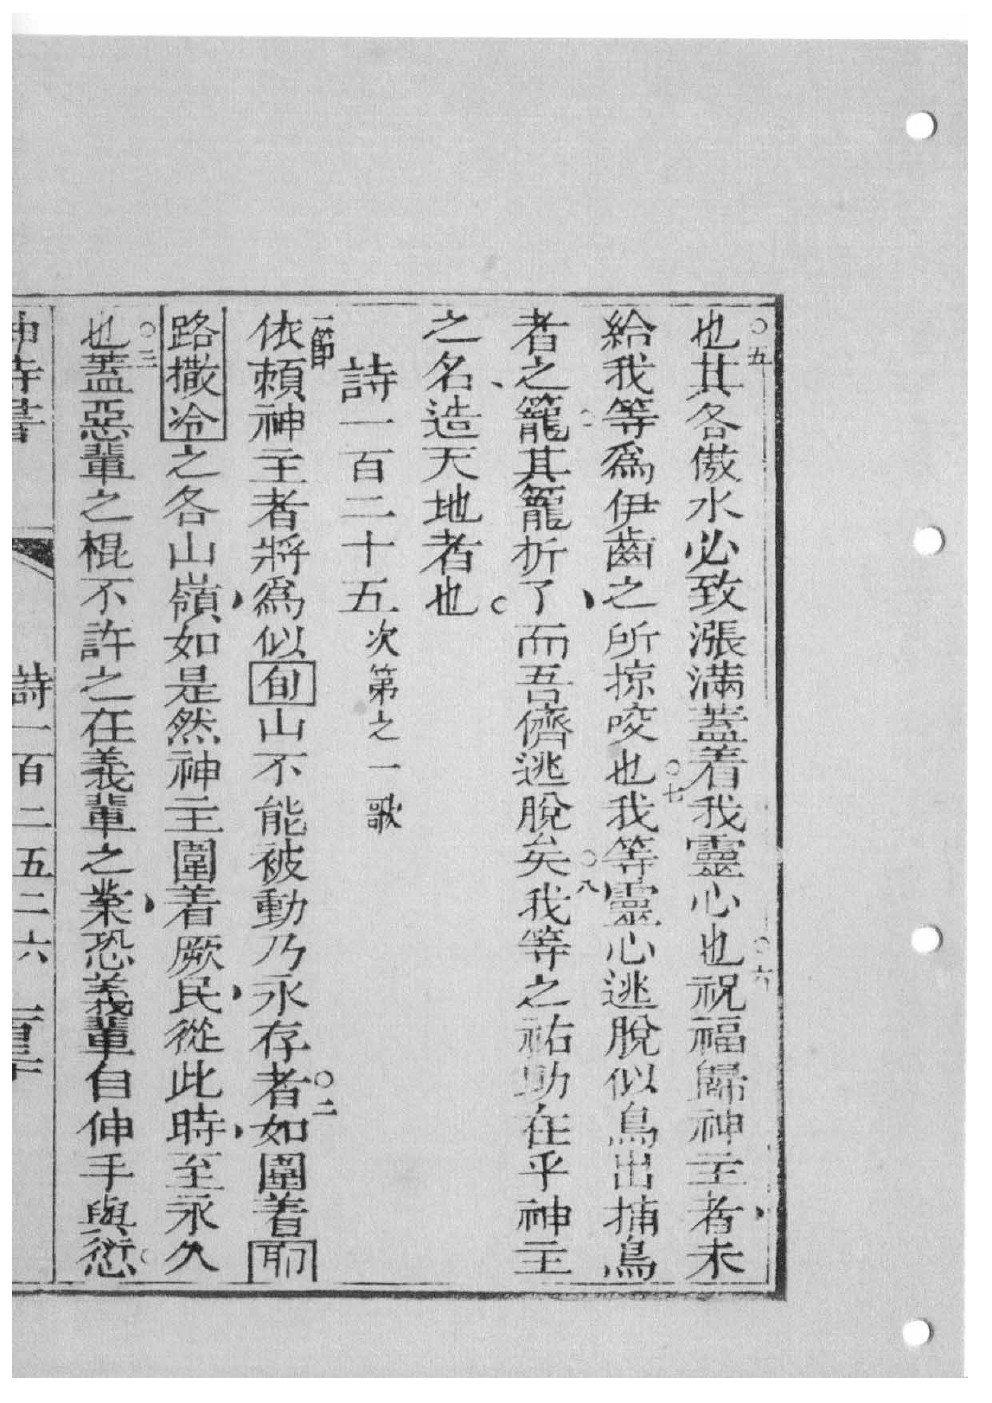 〇五也其各傲水必致漲滿蓋着我靈心也〇六祝福歸神主者未
給我等爲伊齒之所掠咬也〇七我等靈心逃脫似鳥出捕鳥
者之籠其籠折了而吾儕逃脫矣〇八我等之祐助在乎神主
之名造天地者也
詩一百二十五次第之一歌
一節依賴神主者將爲似旬山不能被動乃永存者〇二如圍着耶
路撒冷之各山嶺如是然神主圍着厥民從此時至永久
也〇三蓋惡輩之棍不許之在義輩之業恐義輩自伸手與愆
詩一百二五二六